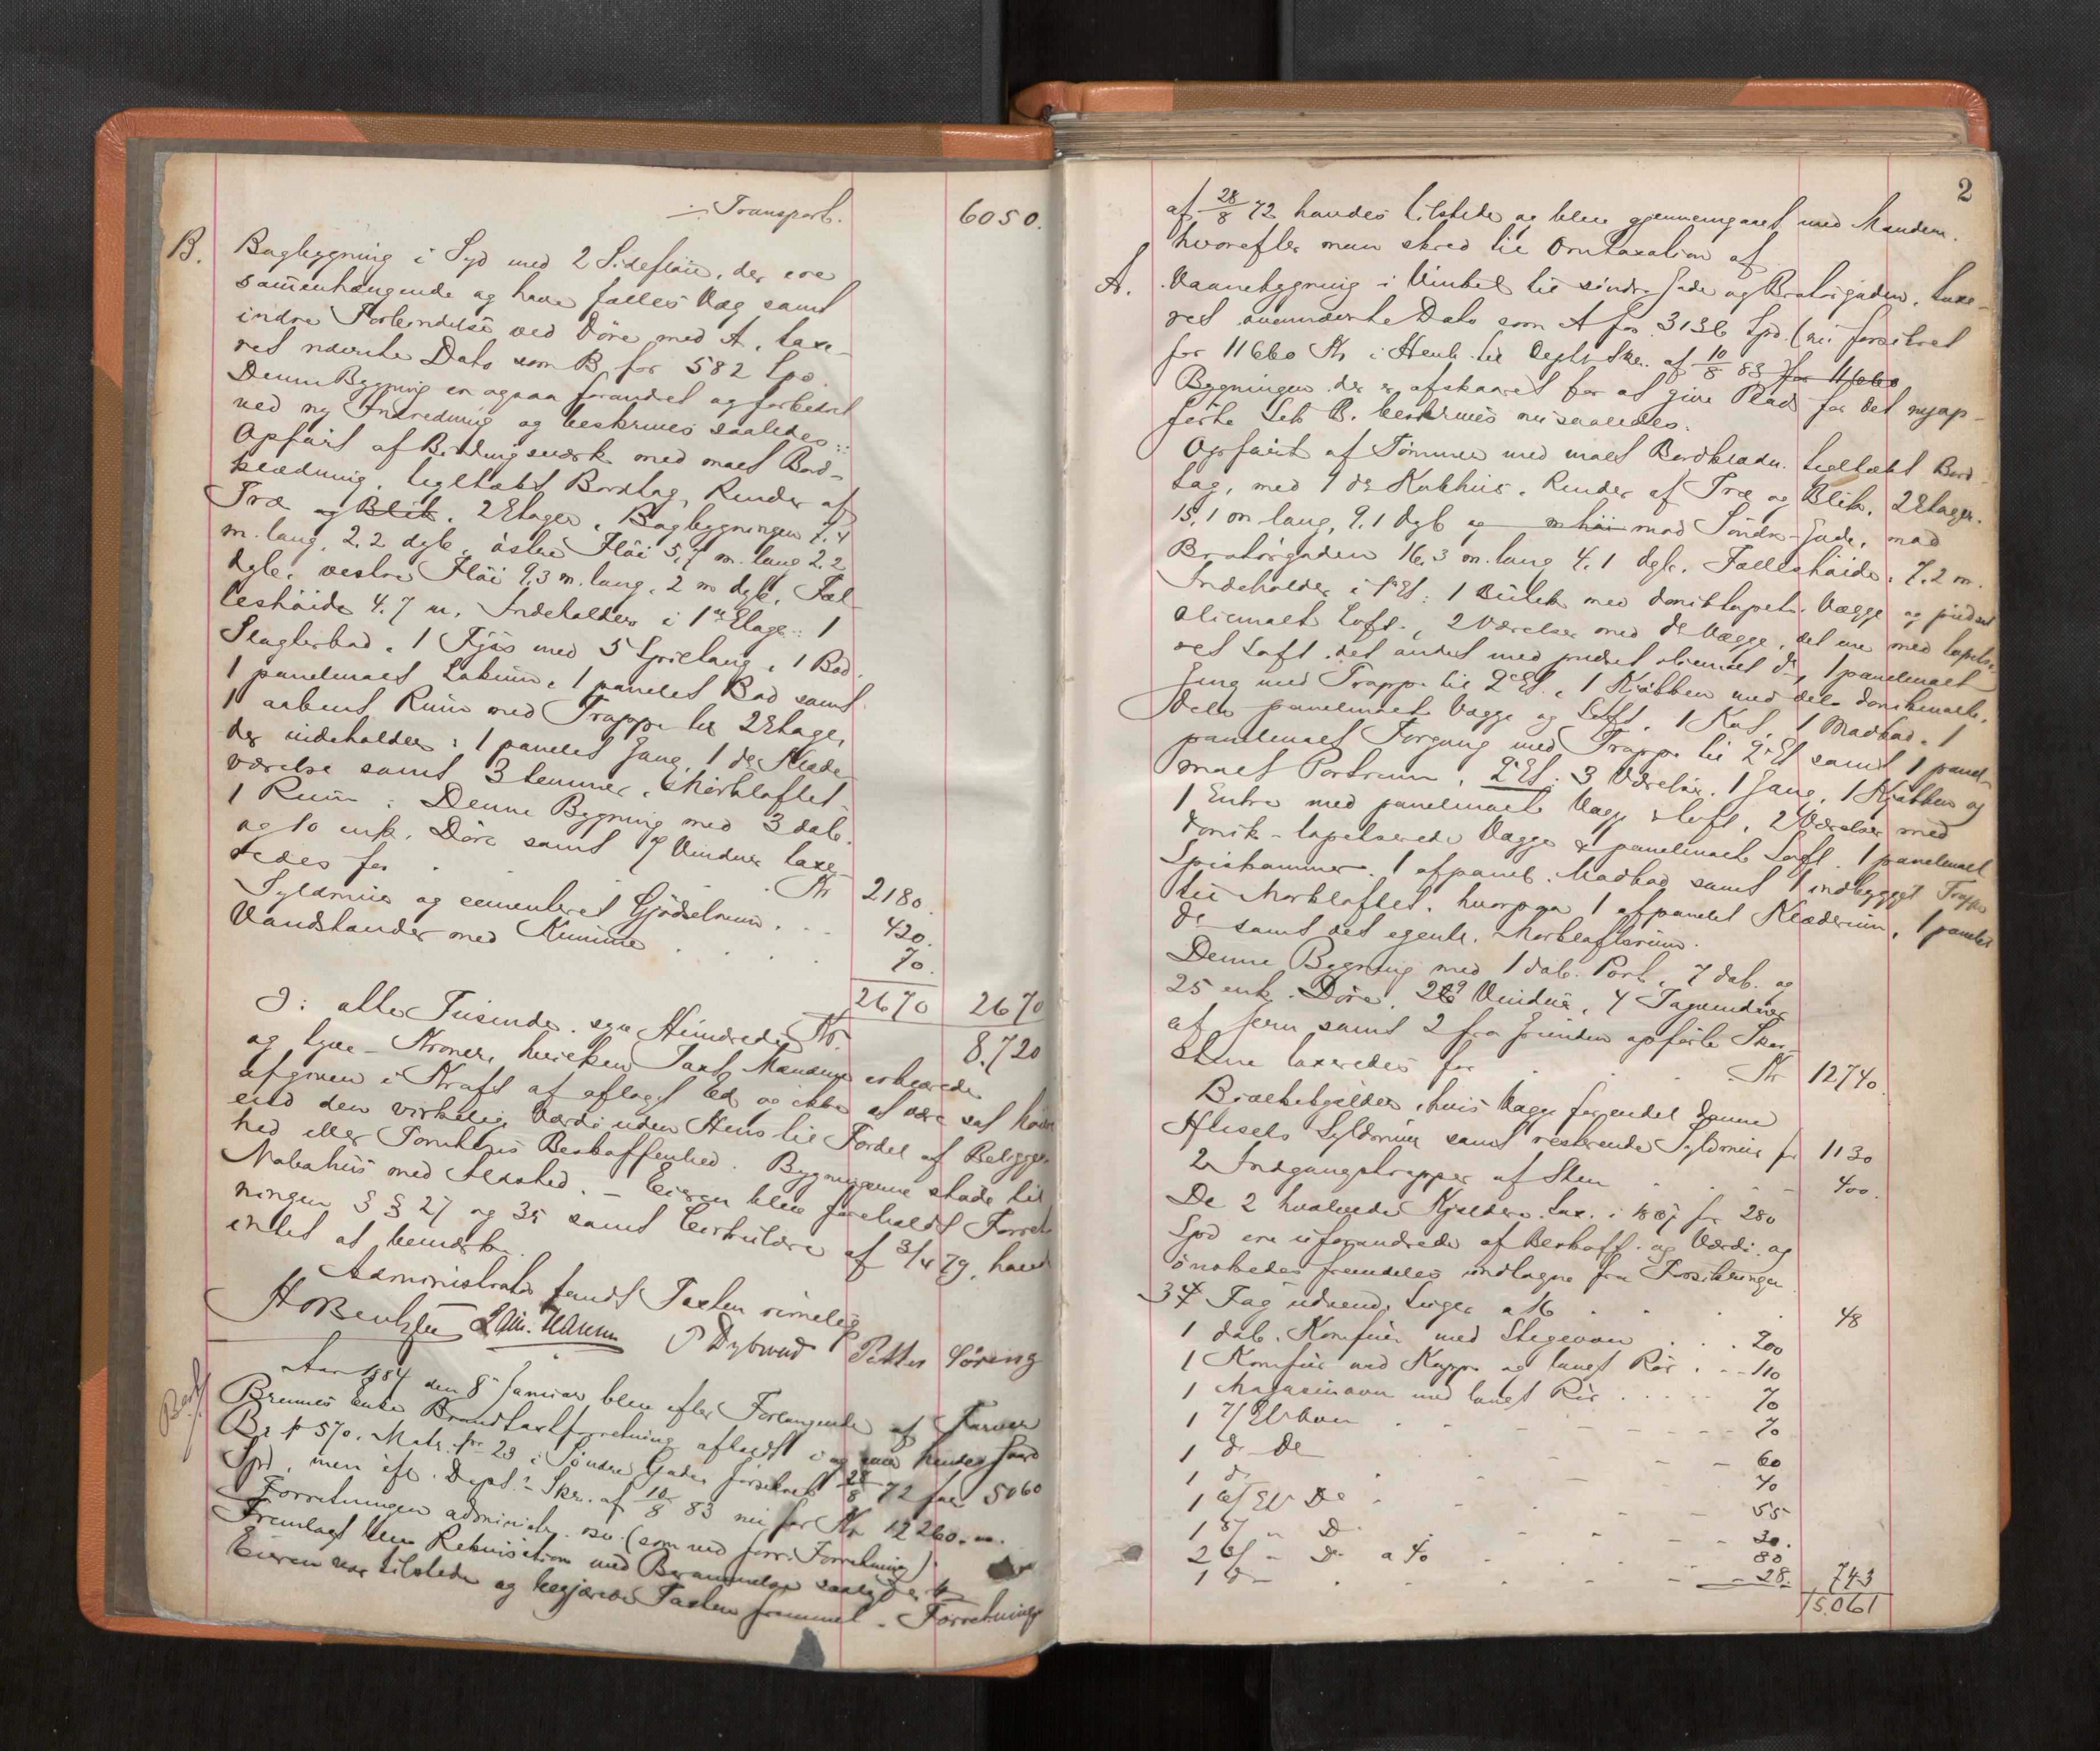 Transport. 6050.
B. Bagbygning i Syd med 2 Sidefløie, der ere
sammenhængende og have fælles Væg samt
indre Forbindelse ved Døre med A, taxe-
ret nævnte Dato som B for 582 Spd.
Denne Bygning er ogsaa forandret og forbedret
ved ny Indredning og beskrives saaledes:
Opført af Bindingsværk med malt Bord-
klædning, tegltækt Bordtag, Render af
Træ og Blik. 2 Etager. Bagbygningen 7.4
m. lang, 2.2 dyb, østre Fløi 5,7 m. lang 2.2
dyb, vestre Fløi 9,3 m. lang, 2 m dyb, Fæl-
leshøide 4.7 m. Indeholder i 1ste Etage: 1
Slagterbod, 1 Fjøs med 5 Spiltaug, 1 Bod,
1 panelmalt Lokum, 1 panelet Bod samt
1 aabent Rum med Trappe til 2 Etage,
der indeholder: 1 panelet Gang, 1 do Klæde-
værelse samt 3 temmer. Mørkloftet
1 Rum. Denne Bygning med 3 dob.
og 10 enk. Døre samt 7 Vinduer taxe-
redes for . . Kr 2180.
Syldmur og cementeret Gjødselrum . . . 420.
Vandstander med Kumme . . . . 70.
2670 2670
Kr. 8.720
ɔ: otte Tusinde syv Hundrede
og tyve Kroner, hvilken Taxt Mændene erklærede
afgiven i Kraft af aflagt Ed og ikke at være sat høiere
end den virkelige Værdi uden Hens. til Fordel af Beliggen-
hed eller Tomtens Beskaffenhed. Bygningerne stode til
Nabohus med Ildsted. – Eieren blev foreholdt Forret-
ningen §§ 27 og 35 samt Cirkulære af 3/4 79, havde
intet at bemærke.
Administrator fandt Taxten rimelig
P Dybwad Petter Søring
Aar 1884 den 8de Januar blev efter Forlangende af Farver
Brunes Enke Brandtaxtforretning afholdt i og over hendes Gaard
Br. No 570. Matr. No 23 i Søndre Gade forsikret 28/8 72 for 5060
Spd, men eft. Dept.s Skr. af 10/8 83 nu for Kr 12260.
Forretningen administr. osv. (som ved forr. Forretning).
Fremlagt blev Rekvisition med Berammelse
Eieren var tilstede og begjærede Taxten fremmet. Forretninger
2
af 28/8 72 havdes tilstede og blev gjennemgaaet med Mændene.
hvorefter man skred til Omtaxation af
A. Vaanebygning i Vinkel til søndre Gade og Bratørgaden, taxe-
ret ovennævnte Dato som A for 3136 Spd. (nu forsikret
for 11660 Kr i Henh. til Depts Skr. af 10/8 83 for 11660
Bygningen der er afskaaret for at give Plads for det nyop-
førte Litr B. beskrives nu saaledes:
Opført af Tømmer med malt Bordklædn. tegltækt Bord-
tag, med 1 do Kubhus. Render af Træ og Blik. 2 Etager.
15,1 m lang, 9.1 dyb og m høi mod Søndre Gade, mod
Bratørgaden 16,3 m. lang 4,1 dyb. Fælleshøide: 7.2 m.
Indeholder i 1ste Et: 1 Butik med donsktapets. Vægge og pudset
oliemalt Loft, 2 Værelser med do Vægge, det ene med tapetse-
ret Loft, det andet med pudset oliemalt do, 1 panelmalt
Gang med Trappe til 2den Et., 1 Kjøkken med dels donskmalte,
dels panelmalte Vægge og Loft, 1 Kot, 1 Madbod, 1
panelmalt Forgang med Trappe til 2den Et samt 1 panel-
malt Portrum. 2den Et: 3 Værelser, 1 Gang, 1 Kjøkken og
1 Entre med panelmalte Vægge & loft, 2 Værelser med
donsk-tapetserede Vægge & panelmalt Loft. 1 panelmalt
Spiskammer. 1 afpanel. Madbod samt 1 indbygget Trappe
til Mørkloftet, hvorpaa 1 afpanelet Klæderum, 1 panelet
do samt det egentl. Mørkloftsrum.
Denne Bygning med 1 dob. Port, 7 dob. og
25 enk. Døre, 29 Vinduer, 4 Tagvinduer
af Jern samt 2 fra Grunden opførte Skor-
stene taxeredes for . . . Kr 12740
Bjælkekjælder, hvis Vægge forendel danne
Husets Syldmur samt resterende Syldmur for 1130
2 Indgangstrapper af Sten . . . 400.
De 2 hvælvede Kjeldere tax. i 1867 for 280
Spd ere uforandrede af Beskaff. og Værdi og
ønskedes fremdeles undtagne fra Forsikringen
34 Fag udvend. Luger a 16 . . . . 48
1 dob. Komfur med Stegeovn . . . 200
1 Komfur med Kappe og langt Rør . . . 110
1 Magasinovn med langt Rør . . . . 70
1 7/ Et. Ovn . . . . 70
1 do Do . . . . 60
1 do . . . . 40
1 6/ Et Do . . . . 55
1 5/ " Do . . . . 30.
2 6/ " Do a 40 . . . . 80
1 do . . . . 28. 743
15.061